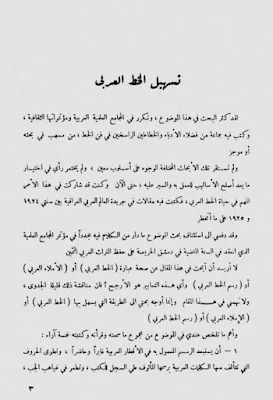 تسهيل الخط العربى
لقد كثر البحث في هذا الموضوع ، وتكرر في المجامع العلمية العربية ومؤتمراتها الثقافية ،
وكتب فيه جماعة من فضلاء الأدباء والخطاطين الراسخين في فن الخط ، من مسهب في بحثه
أو موجز
ولم تستقر تلك الأبحاث المختلفة الوجوه على أسلوب معين ، ولم يختمر رأي في اختيار
ما يعد أصلح الأساليب للعمل به والسير عليه ، حتى الآن وكنت قد شاركت في هذا الأمر
المهم في حياة الخط العربي ، فكتبت فيه مقالات في جريدة العالم العربي العراقية بين سنتي ١٩٢٤
و ١٩٢٥ على ما أتخطر
وقد دفعني الى استئناف بحث الموضوع ما دار من الكلام فيه مجدداً في مؤتمر المجامع العلمية
الذي انعقد في السنة الماضية في دمشق الحريصة على حفظ التراث العربي الثمين
لا أريد أن أبحث في هذا المقال عن صحة عبارة ( الخط العربي ) أو ( الأملاء العربي )
أو ( رسم الخط العربي ) وأي هذه التعابير هو الأرجح ؟ فان مناقشة ذلك قليلة الجدوى ،
ولا تهمني في هذا المقام وإنما أوجه بحثي الى الطريقة التي يسهل بها ( الخط العربي ) أو
( الإملاء العربي ) أو ( رسم الخط العربي )
وأهم ما تلخص عندي في الموضوع من مجموع ما سمعته وقرأته وكتبته خمسة آراء :
١ — أن يستبعد الرسم المعمول به في الأقطار العربية غابراً وحاضراً ، وتطوى الحروف
التي تتألف منها الكلمات العربية برسمها المألوف طي السجل للكتب ، وتطمر في غياهب الجب ،
٣